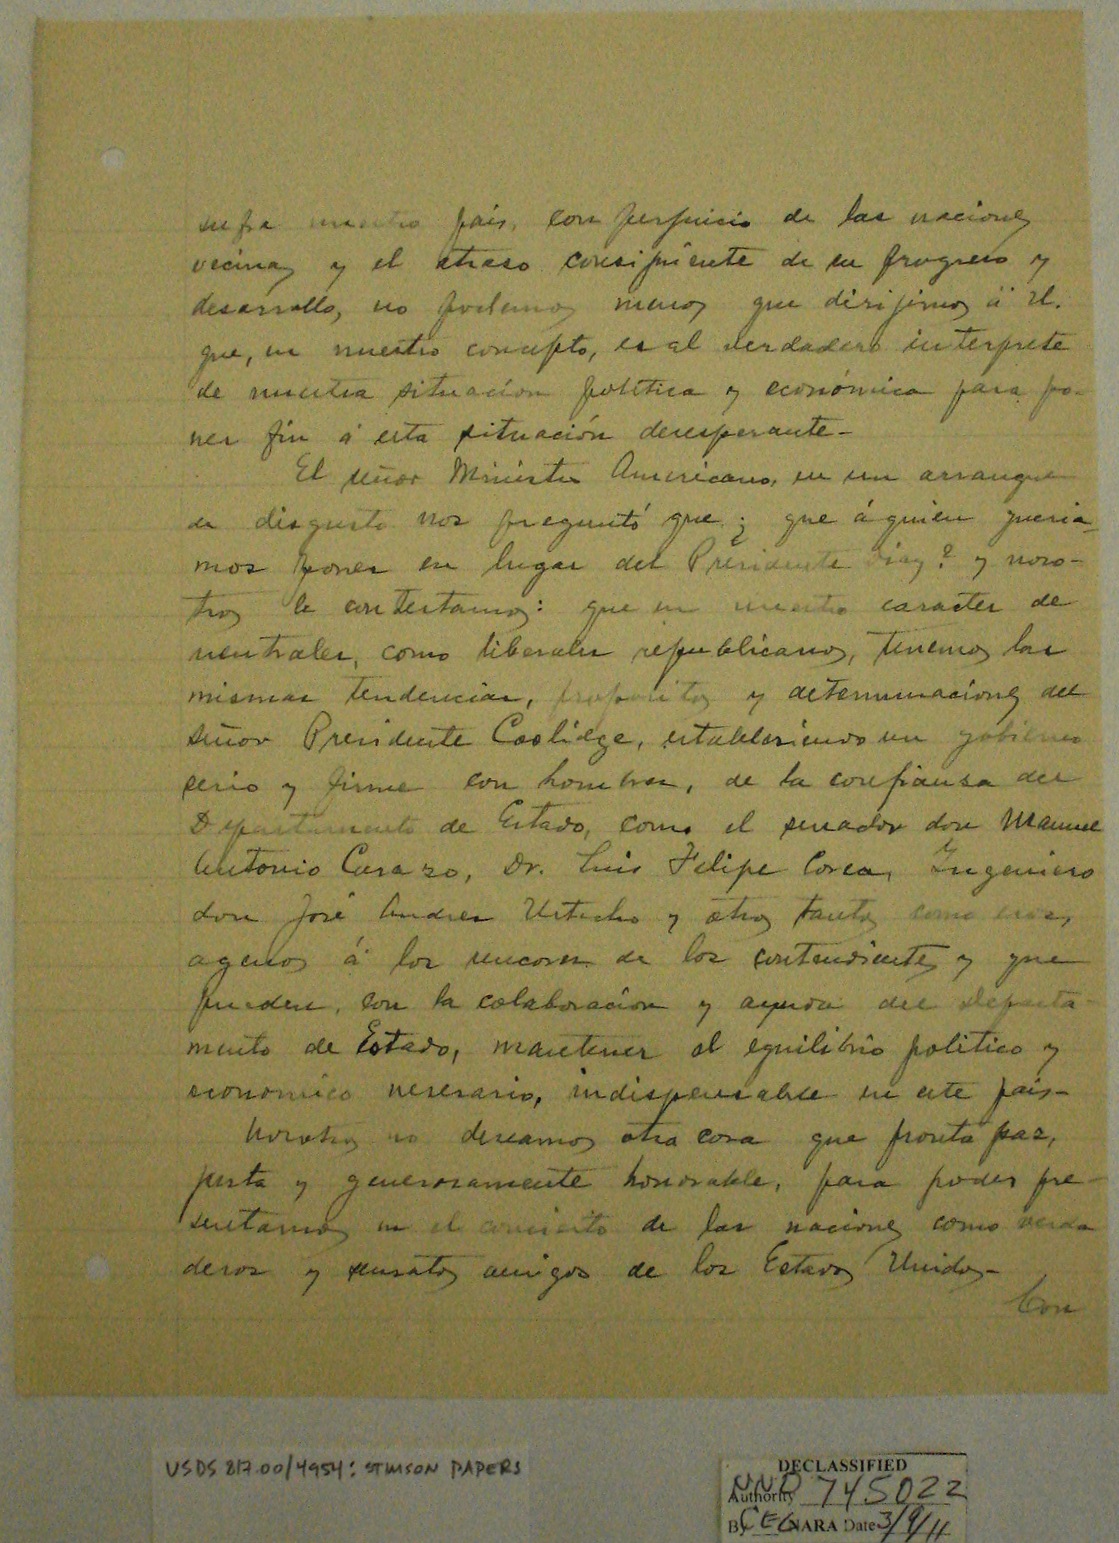 sufra nuestro país, con perjuicio de las naciones
vecinas y el atraso consiguiente de su progreso y
desarrollo, no podemos menos que dirijirnos á U.
que, en nuestro concepto, es el verdadero interprete
de nuestra situación política y económica para po-
ner fin á esta situación desesperante-
El señor Ministro Americano, en un arranque
de disgusto nos preguntó que ¿ que á quien queria-
mos poner en lugar del Presidente Diaz? y noso-
tros le contestamos: que en nuestro caracter de
neutrales, como liberales republicanos, tenemos las
mismas tendencias, propositos y determinaciones del
señor Presidente Coolidge, estableciendo un gobierno
serio y firme con hombres, de la confianza del
Departamento de Estado, como el senador don Manuel
Antonio Carazo, Dr. Luis Felipe Corea, Ingeniero
don José Andres Urtecho y otros tantos como esos,
agenos á los rencores de los contendientes y que
pueden, con la colaboración y ayuda del Departa-
mento de Estado, mantener el equilibrio politico y
economico necesario, indispensable en este pais-
Nosotros no deseamos otra cosa que pronta paz,
justa y generosamente honorable, para poder pre-
sentarnos en el concierto de las naciones como verda
deros y sensatos amigos de los Estados Unidos-
Con
USDS 817.00/4954: STIMSON PAPERS
DECLASSIFIED
Authority NND 745022
By CEC NARA Date 3/9/11